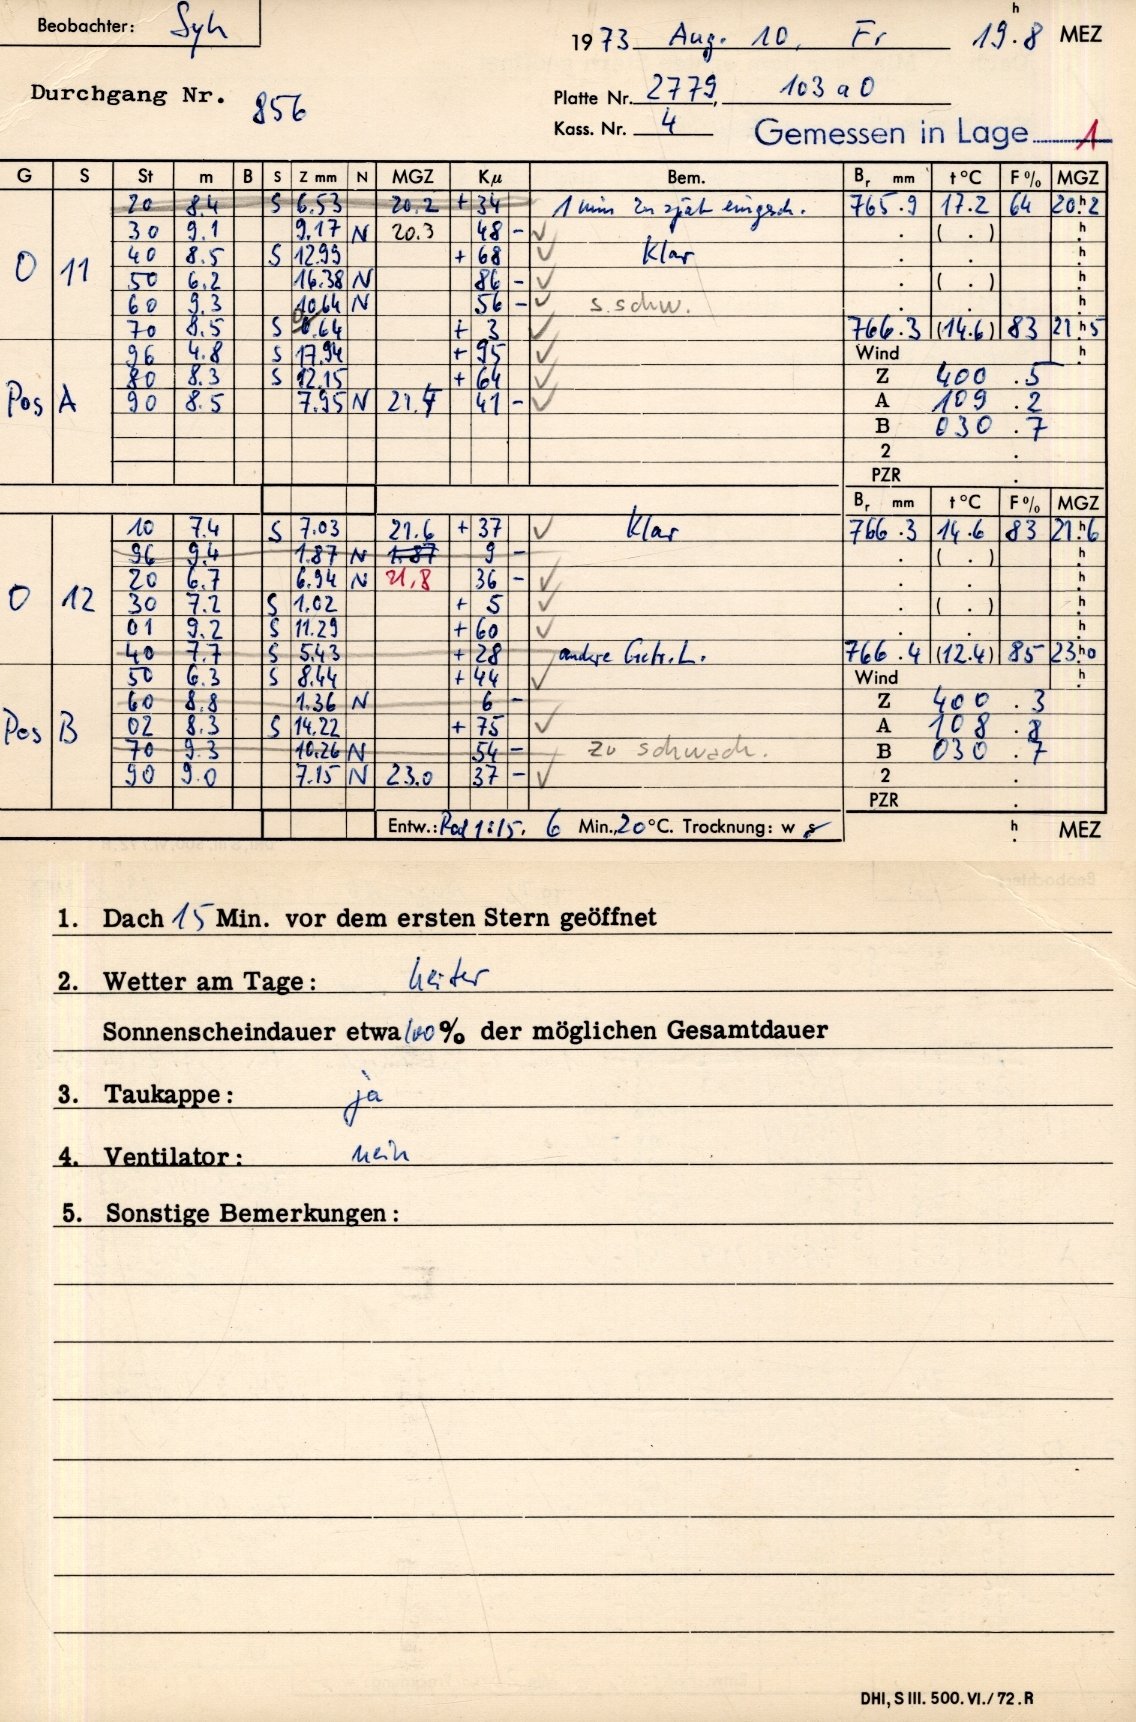 Beobachter: Syh
1973 Aug. 10, Fr 19h.8 MEZ
Durchgang Nr. 856
Platte Nr. 2779, 103 a 0
Kass. Nr. 4
Gemessen in Lage 1
G S St m B S Z mm N MGZ Kμ Bem. Br mm t °C F % MGZ
20 8.4 S 6.53 20.2 + 34 1 min zu spät eingesch. 765.9 17.2 64 20h2
30 9.1 9.17 N 20.3 48 - ✓ . ( . ) h
0 11 40 8.5 S 12.99 + 68 ✓ Klar . . h
50 6.2 16.38 N 86 - ✓ . ( . ) h
60 9.3 10.64 N 56 - ✓ s. schw. . . h
70 8.5 S 0.64 + 3 ✓ 766.3 (14.6) 83 21h5
96 4.8 S 17.94 + 95 ✓ Wind h
80 8.3 S 12.15 + 64 ✓ Z 400 .5
Pos A 90 8.5 7.95 N 21.4 41 - ✓ A 109 .2
B 030 .7
2 .
PZR .
Br mm t °C F % MGZ
10 7.4 S 7.03 21.6 + 37 ✓ Klar 766.3 14.6 83 21h6
96 9.4 1.87 N 1.87 9 - . ( . ) h
20 6.7 6.94 N 21,8 36 - ✓ . . h
0 12 30 7.2 S 1.02 + 5 ✓ . ( . ) h
01 9.2 S 11.29 + 60 ✓ . . h
40 7.7 S 5.43 + 28 andere 766.4 (12.4) 85 23h0
50 6.3 S 8.44 + 44 ✓ Wind h
60 8.8 1.36 N 6 - Z 400 .3
Pos B 02 8.3 S 14.22 + 75 ✓ A 108 .8
70 9.3 10.26 N 54 - zu schwach. B 030 .7
90 9.0 7.15 N 23.0 37 - ✓ 2 .
PZR .
Entw.: Rod 1:15. 6 Min., 20 °C. Trocknung: w h. MEZ
1. Dach 15 Min. vor dem ersten Stern geöffnet
2. Wetter am Tage: heiter
Sonnenscheindauer etwa 100 % der möglichen Gesamtdauer
3. Taukappe: ja
4. Ventilator: nein
5. Sonstige Bemerkungen:
DHI, S III. 500. VI./72. R